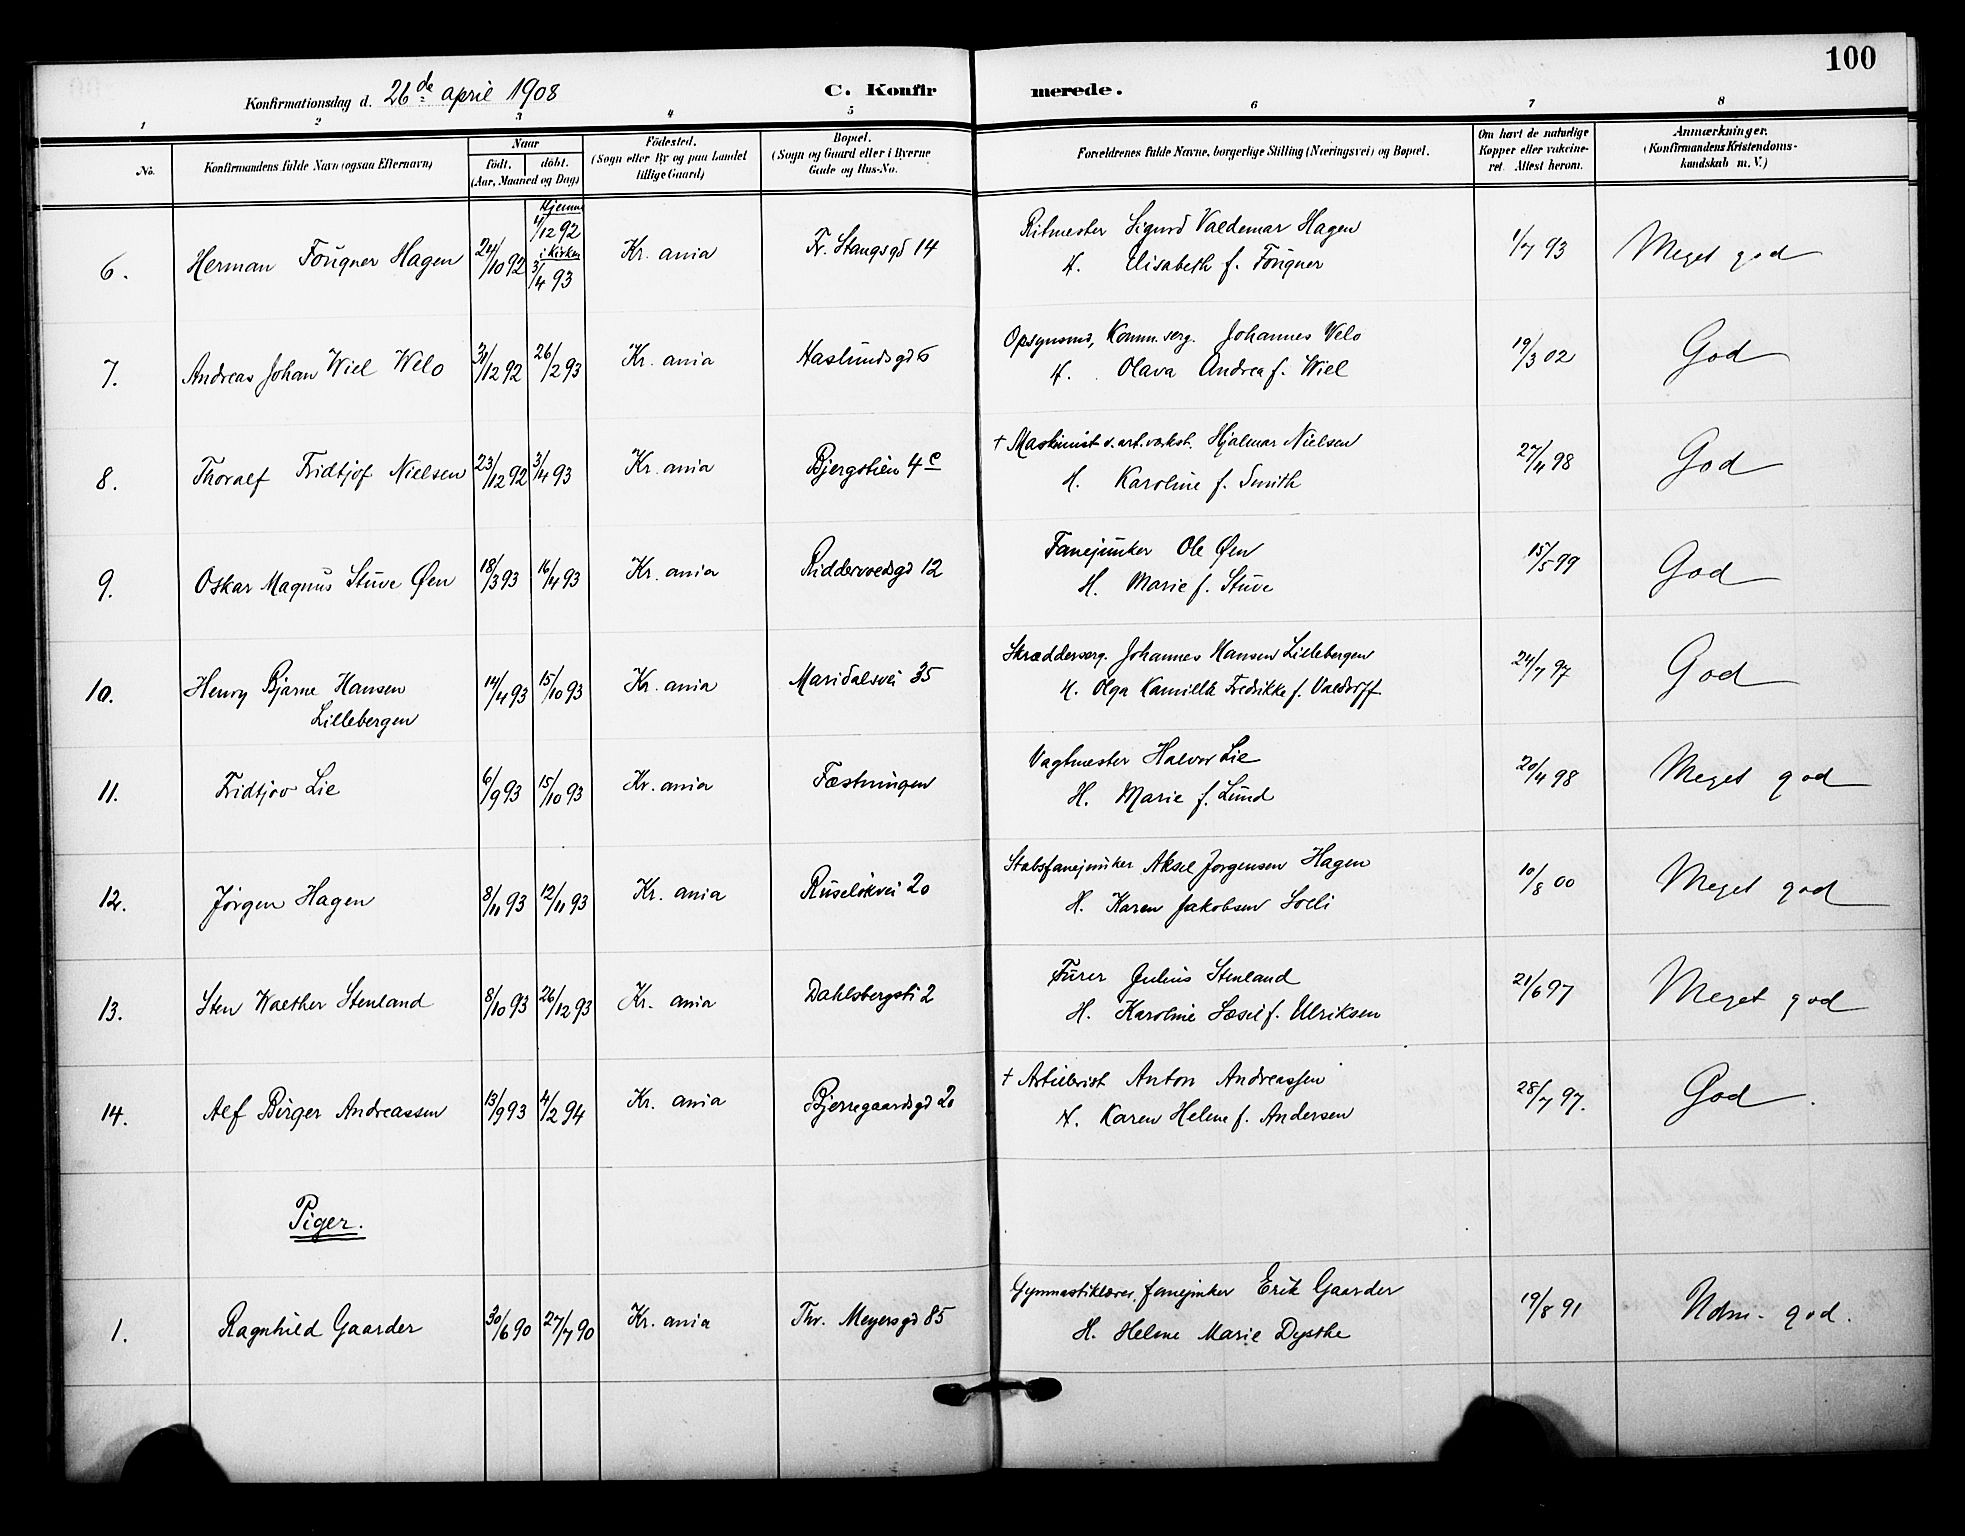 100
Konfirmationsdag d. 26de april 1908
C. Konfirmerede.
1 2 3 4 5 6 7 8
No.
Konfirmandens fulde Navn (ogsaa Efternavn)
Naar
födt. döbt.
(Aar, Maaned og Dag)
Födested.
(Sogn eller By og paa Landet
tillige Gaard)
Bopæl.
(Sogn og Gaard eller i Byerne
Gade og Hus-No.
Forældrenes fulde Navne, borgerlige Stilling (Næringsvei) og Bopæl.
Om havt de naturlige
Kopper eller vakcine-
ret. Attest herom.
Anmærkninger.
(Konfirmandens Kristendoms-
kundskab m. V.)
6. Herman Fougner Hagen 24/10 92 Hjemme 4/12 92 i Kirken 3/4 93 Kr. ania Fr. Stangsgd 14 Ritmester Sigurd Valdemar Hagen 1/7 93 Meget god
H. Elisabeth f. Fougner
7. Andreas Johan Wiel Welo 31/12 92 26/2 93 Kr. ania Haslundsgd 6 Opsynsmd, Komm. serg. Johannes Welo 19/3 02 God
H. Olava Andrea f. Wiel
8. Thoralf Fridtjof Nielsen 23/12 92 3/4 93 Kr. ania Bjergstien 4c † Maskinist v. art. verkst. Hjalmar Nielsen 27/4 98 God
H. Karoline f. Smith
9. Oskar Magnus Stuve Øen 18/3 93 16/4 93 Kr. ania Riddervoldsgd 12 Fanejunker Ole Øen 15/5 99 God
H. Marie f. Stuve
10. Henry Bjarne Hansen 14/4 93 15/10 93 Kr. ania Maridalsvei 35 Skrædderserg. Johannes Hansen Lillebergen 24/7 97 God
Lillebergen H. Olga Kamilla Fredrikke f. Valdorff
11. Fridtjov Lie 6/9 93 15/10 93 Kr. ania Fæstningen Vagtmester Halvor Lie 20/4 98 Meget god
H. Marie f. Lund
12. Jörgen Hagen 8/11 93 12/11 93 Kr. ania Ruselökvei 20 Stabsfanejunker Aksel Jorgensen Hagen 10/8 00 Meget god
H. Karen Jakobsen Soeli
13. Sten Walther Stenland 8/10 93 26/12 93 Kr. ania Dahlsbergsti 2 Furer Julius Stenland 21/6 97 Meget god
H. Karoline f. Ulriksen
14. Alf Birger Andreassen 13/9 93 4/2 94 Kr. ania Bjerregaardsgd 20 † Artillerist Anton Andreassen 28/7 97. God.
H. Karen Helene f. Andersen
Piger.
1. Ragnhild Gaarder 30/6 90 27/7 90 Kr. ania Thv. Meyersgd 85 Gymnastiklærer, fanejunker Erik Gaarder 19/8 91 Udm. god.
H. Helene Marie Dysthe